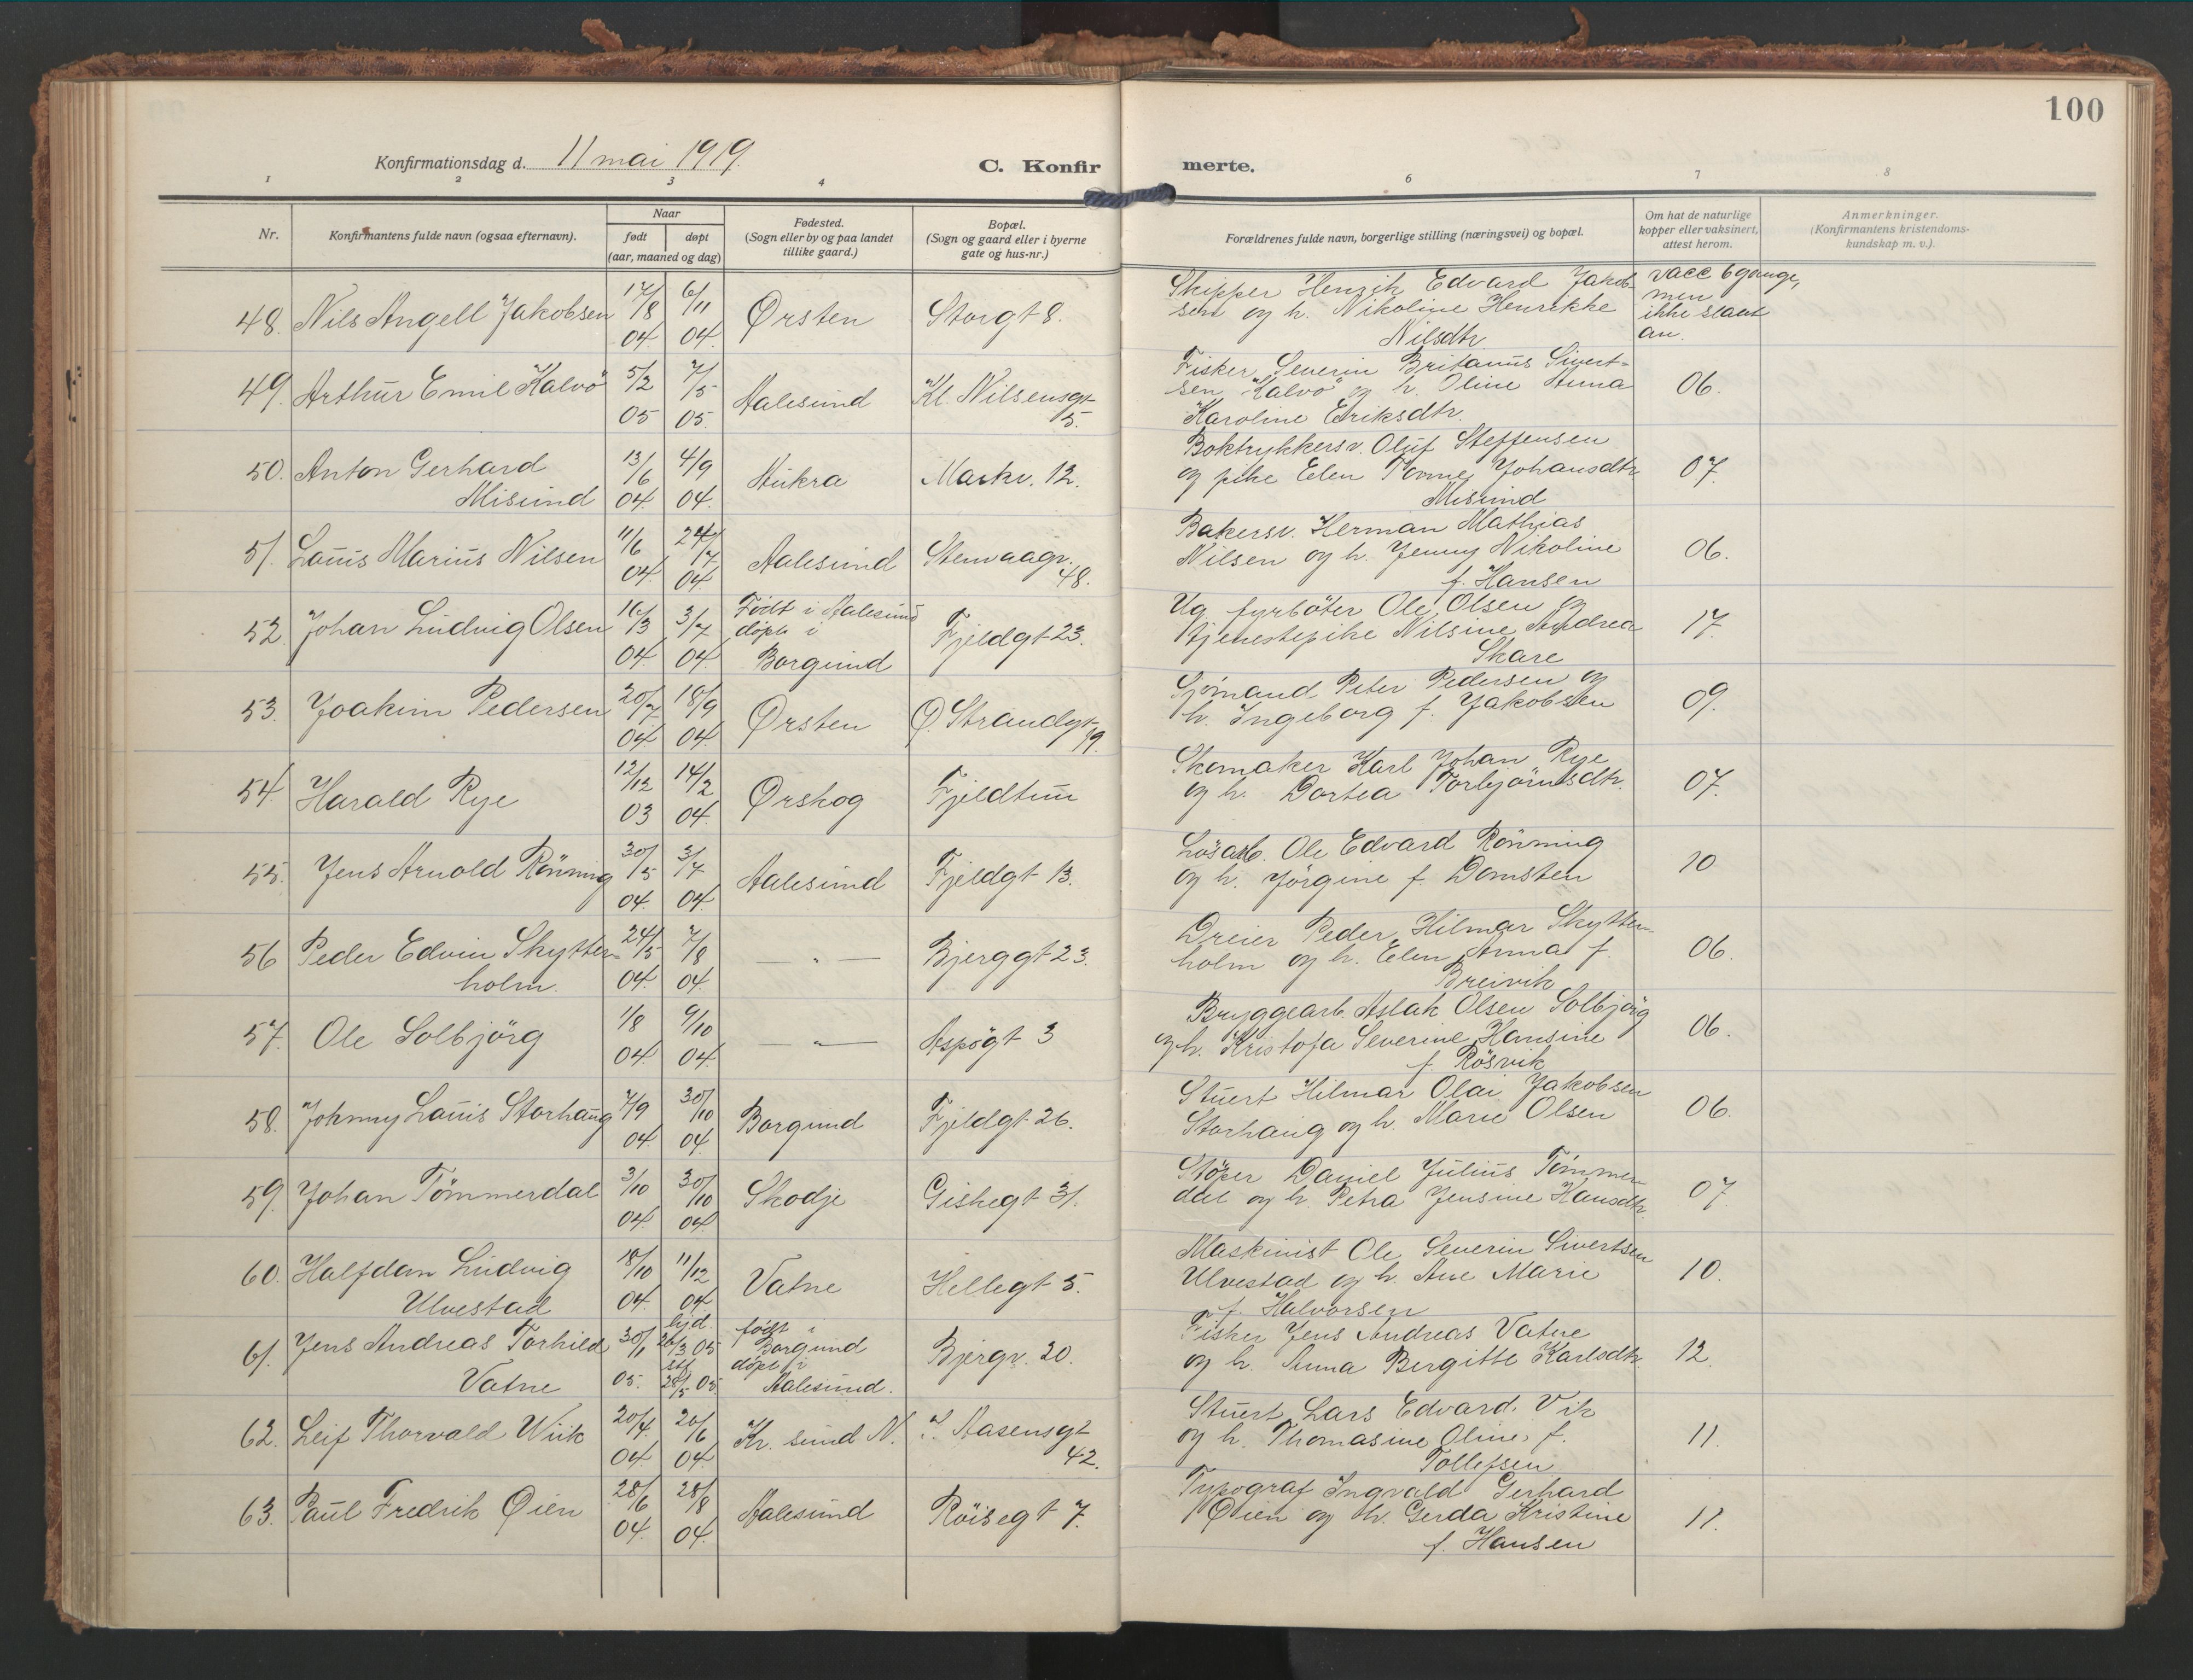 100
Konfirmationsdag d. 11 mai 1919.
C. Konfir
merte.
1 2 3 4 6 7 8
Nr.
Konfirmantens fulde navn (ogsaa efternavn).
Naar
født døpt
(aar, maaned og dag)
Fødested.
(Sogn eller by og paa landet
tillike gaard.)
Bopæl.
(Sogn og gaard eller i byerne
gate og hus-nr.)
Forældrenes fulde navn, borgerlige stilling (næringsvei) og bopæl.
Om hat de naturlige
kopper eller vaksinert,
attest herom.
Anmerkninger.
(Konfirmantens kristendoms-
kundskap m. v.).
48. Nils Angell Jakobsen 17/8 04. 6/11 04. Ørsten Storgt 8.
Skipper Henrik Edvard Jakob-
sen og h. Nikoline Henrikke
Nilsdtr.
vacc 6 gange,
men
ikke slaat
an.
49. Arthur Emil Kalvö 5/2 05 7/5 05. Aalesund Kl. Nilsensgt
5.
Fisker Severin Britanus Sivert-
sen "Kalvö" og h. Oline Anna
Karoline Eriksdtr.
06.
50. Anton Gerhard
Misund
13/6 04. 4/9 04. Aukra Markv. 12.
Boktrykkersv. Oluf Steffensen
og pike Elen Johansdtr
Misund
07.
51. Lauis Marius Nilsen 11/6 04. 24/7 04. Aalesund Stenvaagv.
48.
Bakersv. Herman Mathias
Nilsen og h. Jenny Nikoline
f. Hansen
06.
52. Johan Ludvig Olsen 16/3 04. 3/7 04. Födt i Aalesund
döpt i
Borgund
Fjeldgt 23.
Ug. fyrböter Ole Olsen og
tjenestepike Nilsine Andrea
Skare
17.
53. Joakim Pedersen 20/7 04. 18/9 04. Ørsten Ø. Strandgt
19.
Sjömand Peter Pedersen og
h. Ingeborg f. Jakobsen
09.
54. Harald Rye 12/12 03 14/2 04. Ørskog Fjeldtun
Skomaker Karl Johan Rye
og h. Dortea Torbjörnsdtr.
07.
55. Jens Arnold Rönning 30/5 04. 3/7 04. Aalesund Fjeldgt 13.
Lösarb. Ole Edvard Rönning
og h. Jörgine f. Domsten
10
56 Peder Edvin Skytter-
holm.
24/5 04. 7/8 04. — " — Bjerggt 23.
Dreier Peder Hilmar Skytter-
holm og h. Elen Anna f.
Breivik
06.
57. Ole Solbjörg 1/8 04. 9/10 04. — " — Aspögt 3
Bryggearb. Aslak Olsen Solbjörg
og h. Kristofa Severine Hansine
f. Rösvik
06.
58. Johnny Lauis Storhaug 7/9 04. 30/10 04. Borgund Fjeldgt 26.
Stuert Hilmar Olai Jakobsen
Storhaug og h. Marie Olsen
06.
59. Johan Tömmerdal 3/10 04. 30/10 04. Skodje Giskegt 31.
Stöper Daniel Julius Tömmer-
dal og h. Petra Jensine Hansdtr.
07.
60. Halfdan Ludvig
Ulvestad
18/10 04. 11/12 04. Vatne Hellegt 5.
Maskinist Ole Severin Sivertsen
Ulvestad og h. Ane Marie
f. Halvorsen
10.
61. Jens Andreas Torhild
Vatne
30/1 05. hjd. 26/3 05 stf 28/5 05. født i
Borgund
döpt i
Aalesund.
Bjergv. 20.
Fisker Jens Andreas Vatne
og h. Anna Bergitte Karlsdtr.
12.
62. Leif Thorvald Wiik 20/4 04. 26/6 04. Kr. sund N. I. Aasensgt
42.
Stuert Lars Edvard Vik
og h. Thomasine Oline f.
Tollefsen
11.
63. Paul Fredrik Øien 28/6 04. 28/8 04. Aalesund Röisegt 7.
Typograf Ingvald Gerhard
Øien og h. Gerda Kristine
f. Hansen
11.